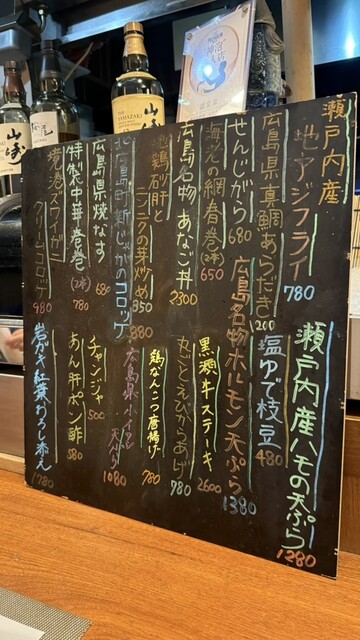 瀬戸内産
地アジフライ 780
広島県真鯛あらだき 1200
せんじがら 680
海老の網春巻(2本) 650
広島名物 あなご丼 2300
地鶏ッ肝と
ニンニクの芽炒め 850
北広島町新じゃがのコロッケ 880
広島県焼なす 680
特製中華春巻(2本) 780
境港ズワイガニ
クリームコロッケ 980
瀬戸内産ハモの天ぷら 1280
塩ゆで枝豆 480
広島名物ホルモン天ぷら 1380
黒瀬牛ステーキ 2600
丸ごとえびからあげ 780
鶏なんこつ唐揚げ 780
広島県小イワシ天ぷら 1080
チャンジャ 500
あん肝ポン酢 580
岩ガキ紅葉おろし添え 1780
THE YAMAZAKI
山崎